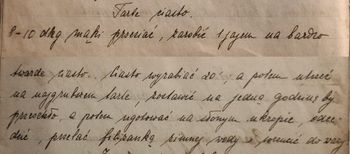 Tarte ciasto.
8-10 dkg mąki przesiać, zarobić 1 jajem na bardzo
twarde ciasto. Ciasto wyrabiać , a potem utrzeć
na najgrubszem tarle zostawić na jedną godzinę by
przeschło, a potem ugotować na słonym ukropie, odce-
dzić, przelać filiżanką zimnej wody i wrzucić do wazy